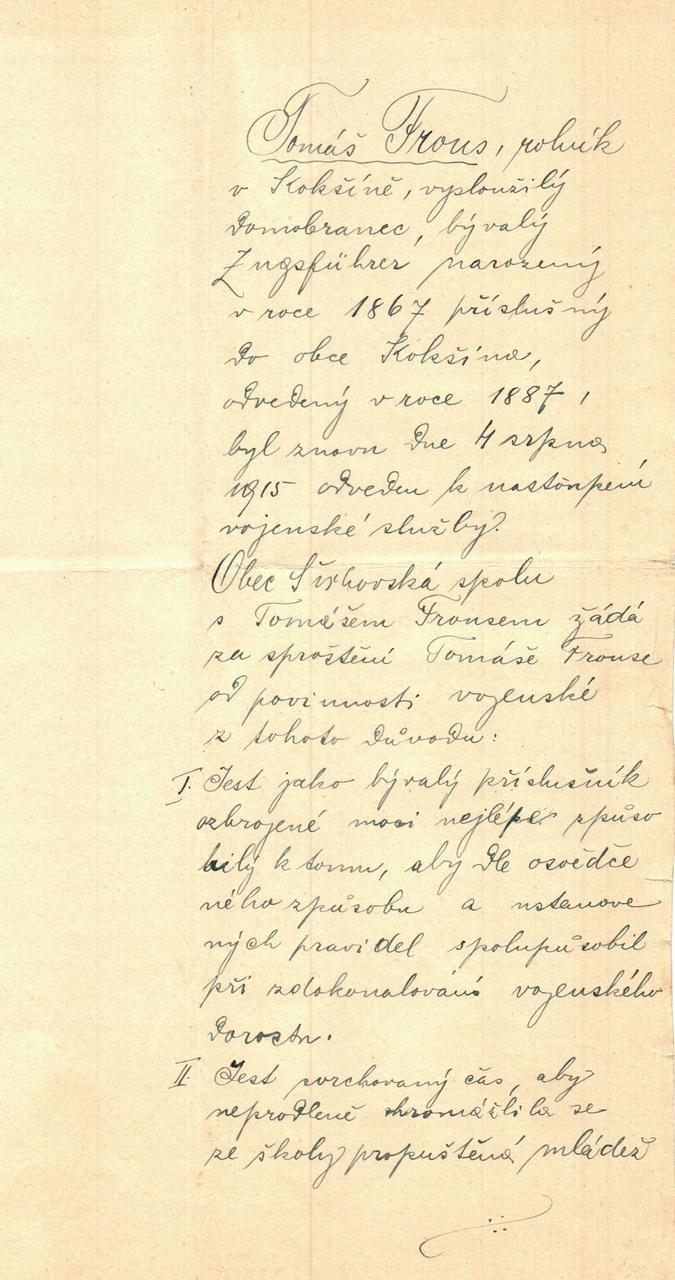 Tomáš Frous, rolník
v Kokšíně, vysloužilý
domobranec, bývalý
Zugsführer, narozený
v roce 1867 příslušný
do obce Kokšína,
odvedený v roce 1887,
byl znovu dne 4 srpna
1915 odveden k nastoupení
vojenské služby.
Obec Švihovská spolu
s Tomášem Frousem žádá
za sproštění Tomáše Frouse
od povinnosti vojenské
z tohoto důvodu:
I. Jest jako bývalý příslušník
ozbrojené moci nejlépe způso
bilý k tomu, aby dle osvědče
ného způsobu a ustanove
ných pravidel spolupůsobil
při zdokonalování vojenského
dorostu.
II. Jest svrchovaný čas, aby
neprodleně shromáždila se
ze školy propuštěná mládež